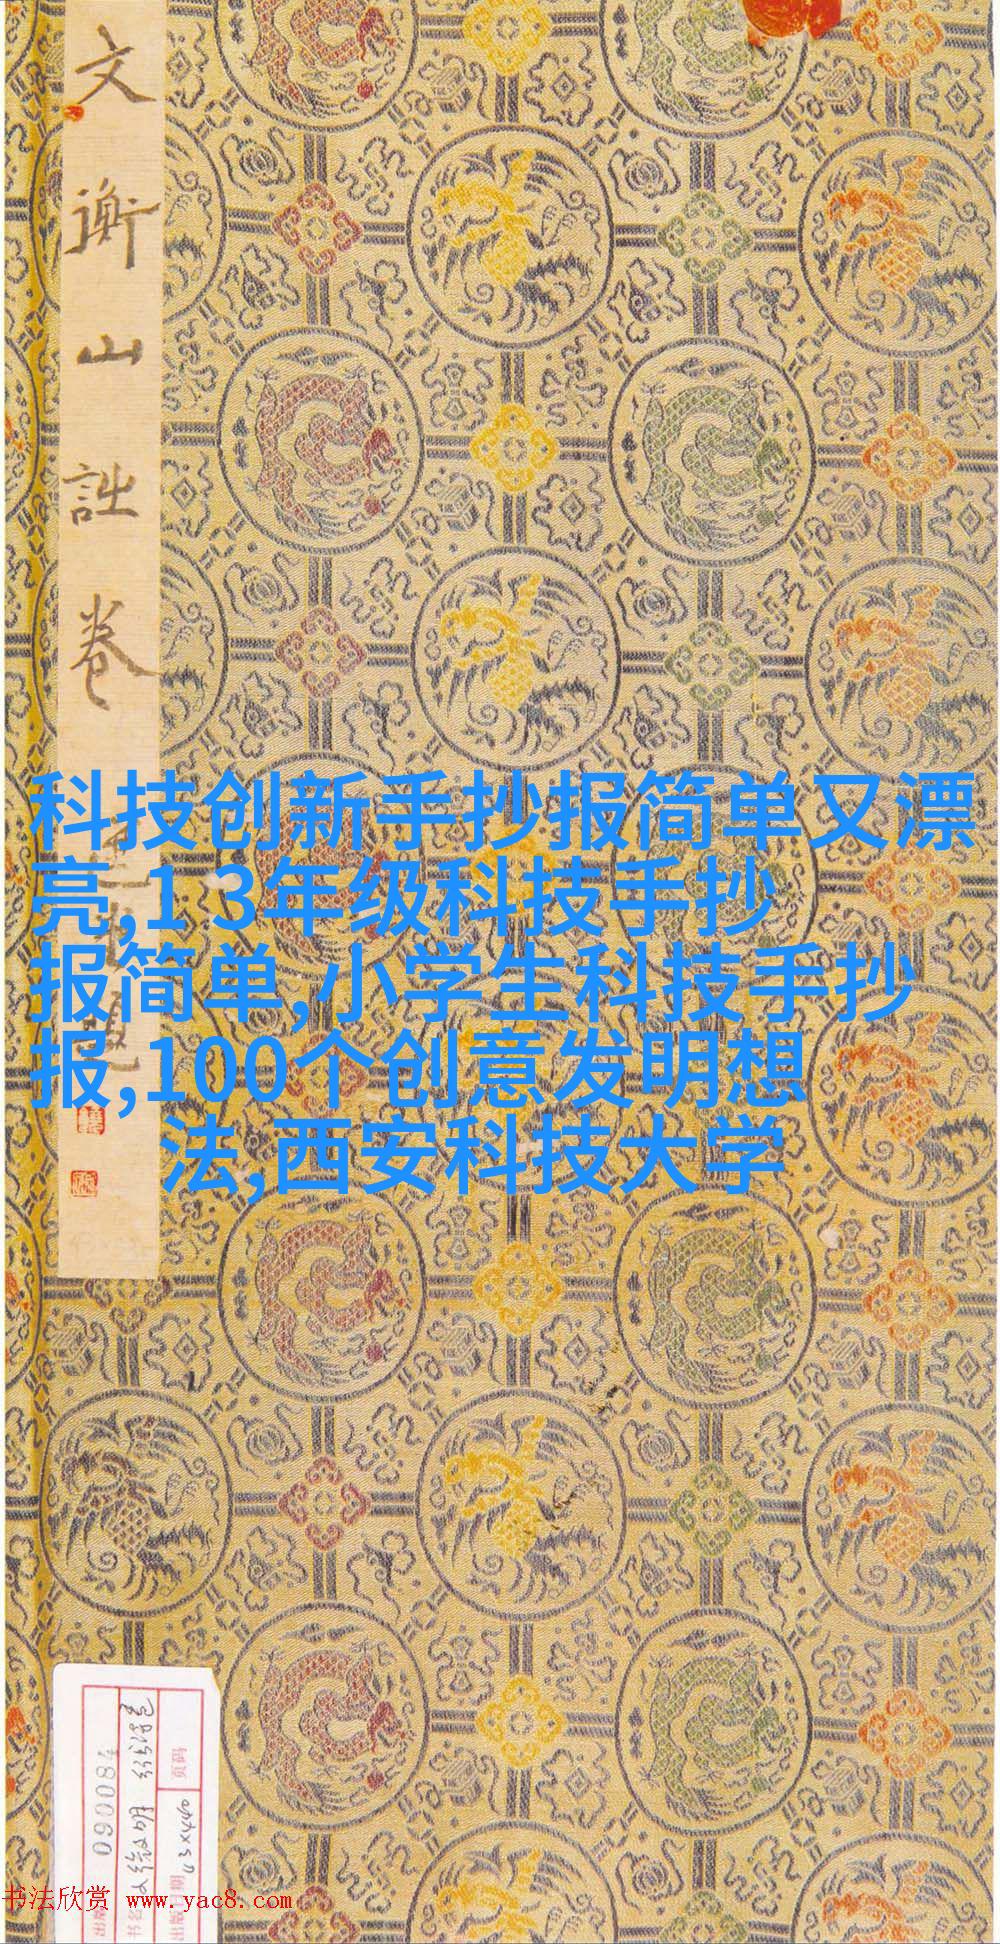 文衡山詩卷
科技创新手抄报简单又漂
亮,1 3年级科技手抄
报简单,小学生科技手抄
报,100个创意发明想
法,西安科技大学
090084
页码
43x440
书法欣赏 www.yac8.com